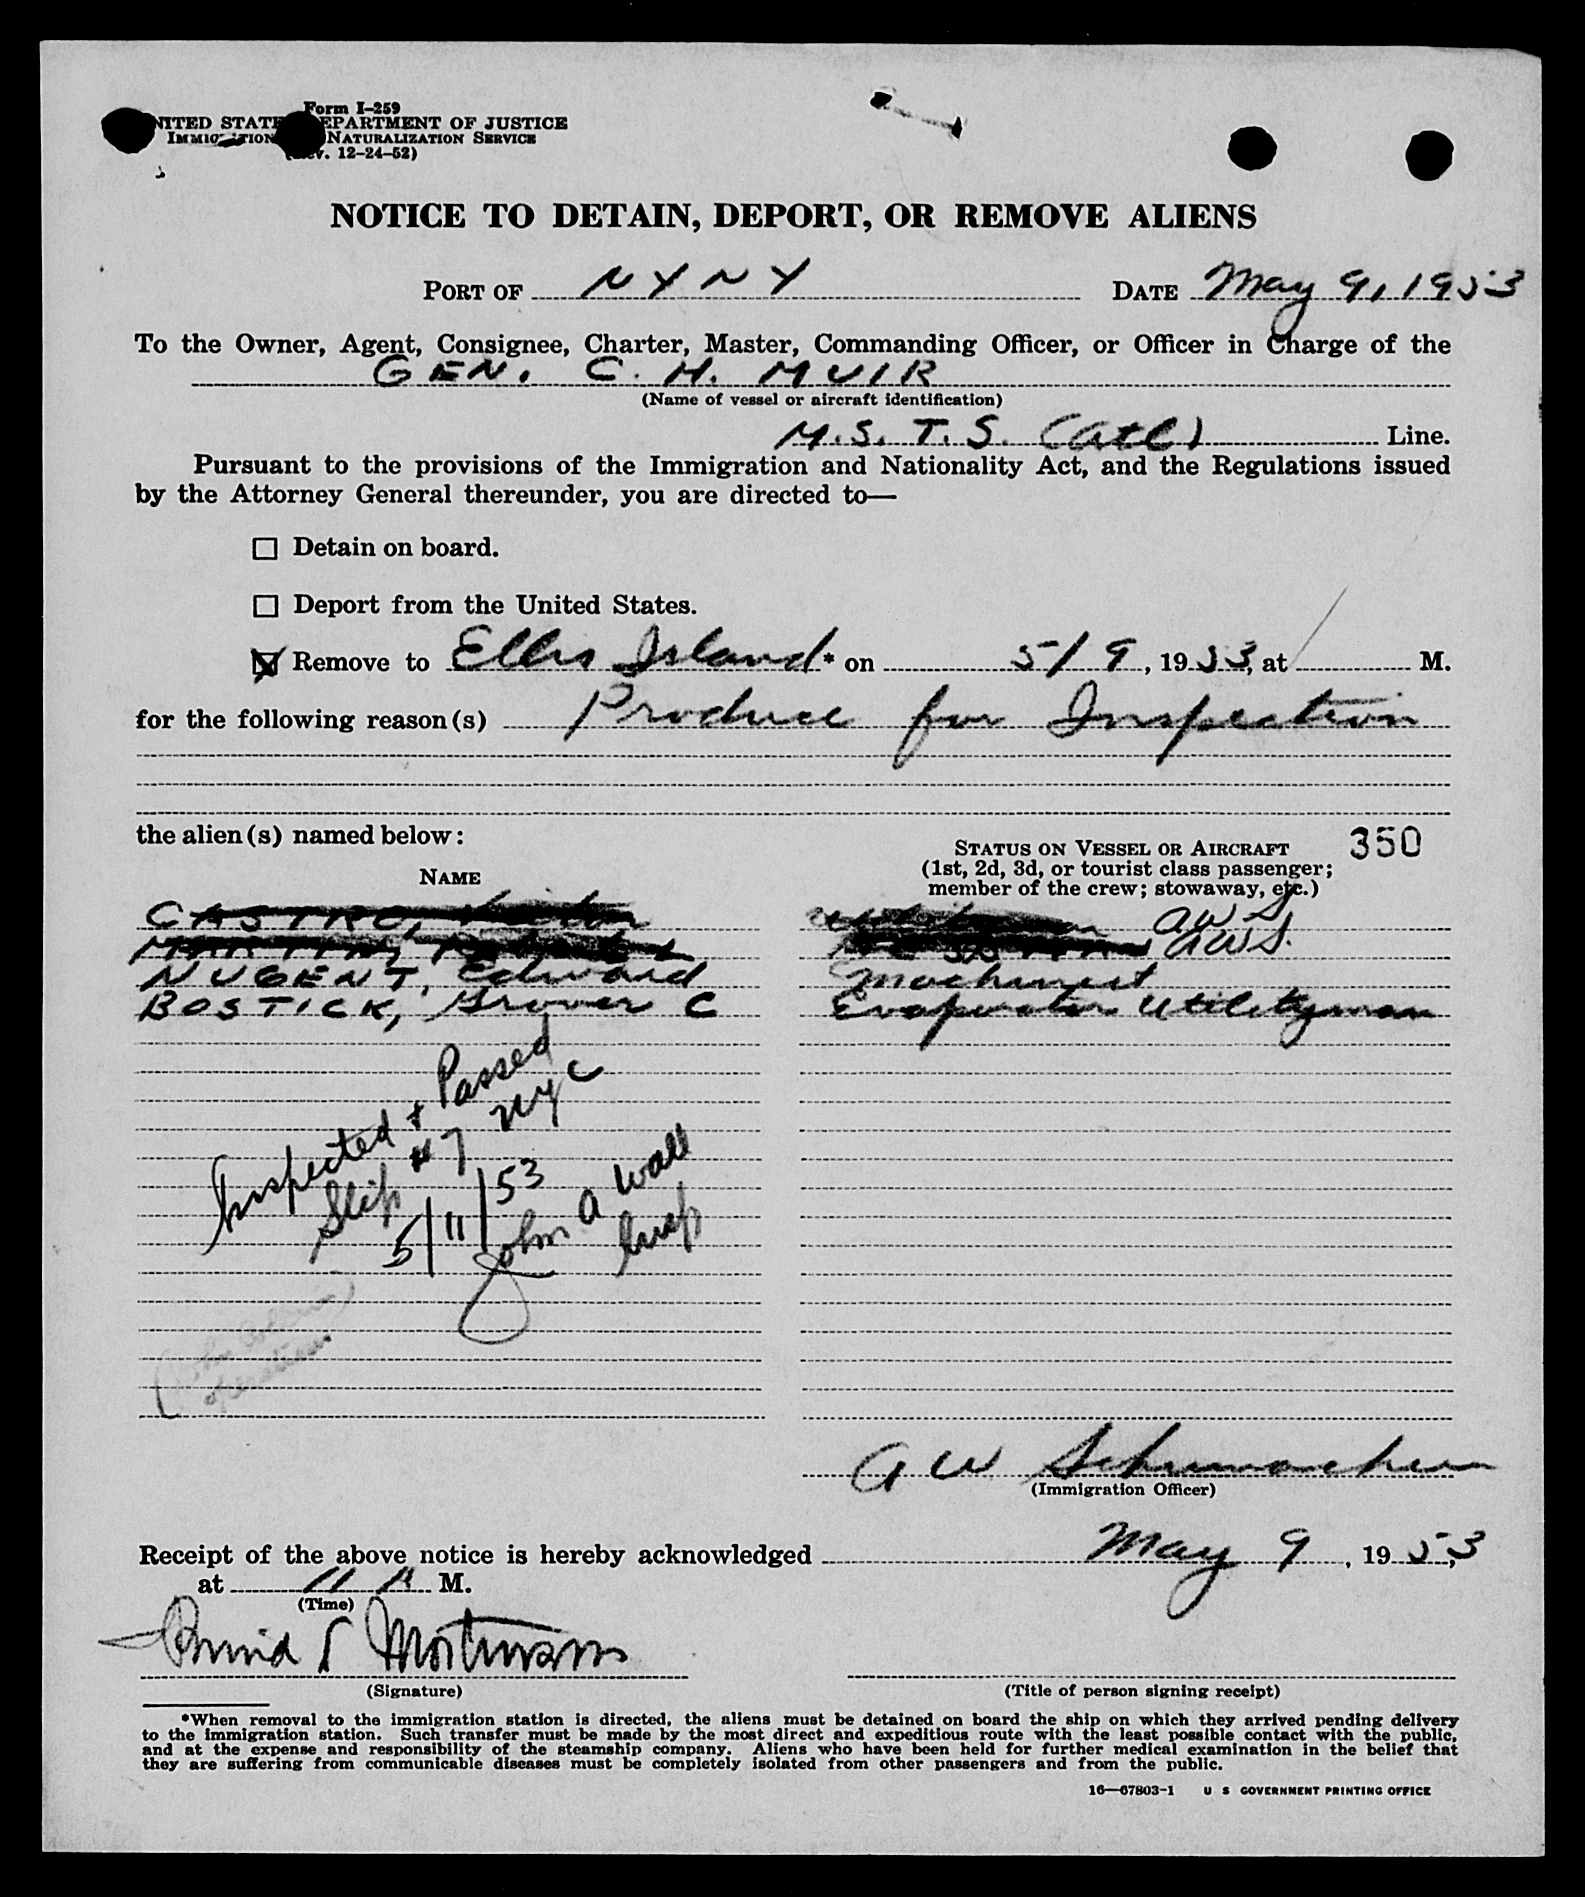 Form I-259
UNITED STATES DEPARTMENT OF JUSTICE
IMMIGRATION NATURALIZATION SERVICE
(Rev. 12-24-52)
NOTICE TO DETAIN, DEPORT, OR REMOVE ALIENS
PORT OF NYNY DATE May 9, 1953
To the Owner, Agent, Consignee, Charter, Master, Commanding Officer, or Officer in Charge of the
GEN. C. H. MUIR
(Name of vessel or aircraft identification)
M.S.T.S. (Atl) Line.
Pursuant to the provisions of the Immigration and Nationality Act, and the Regulations issued
by the Attorney General thereunder, you are directed to—
Detain on board.
Deport from the United States.
Remove to Ellis Island* on 5/9, 1953, at M.
for the following reason(s) Produce for Inspection
the alien(s) named below:
STATUS ON VESSEL OR AIRCRAFT 350
(1st, 2d, 3d, or tourist class passenger;
member of the crew; stowaway, etc.)
NAME
CASTRO, AWS
MARTIN, AWS.
NUGENT, Edward Machinist
BOSTICK, Grover C Evaporator Utilityman
Inspected & Passed
Slip #7 NYC
5/11/53
John A Wall
Insp
A W Schumacher
(Immigration Officer)
Receipt of the above notice is hereby acknowledged May 9, 1953,
at 11 A M.
(Time)
(Signature) (Title of person signing receipt)
*When removal to the immigration station is directed, the aliens must be detained on board the ship on which they arrived pending delivery
to the immigration station. Such transfer must be made by the most direct and expeditious route with the least possible contact with the public,
and at the expense and responsibility of the steamship company. Aliens who have been held for further medical examination in the belief that
they are suffering from communicable diseases must be completely isolated from other passengers and from the public.
16—67803-1 U S GOVERNMENT PRINTING OFFICE